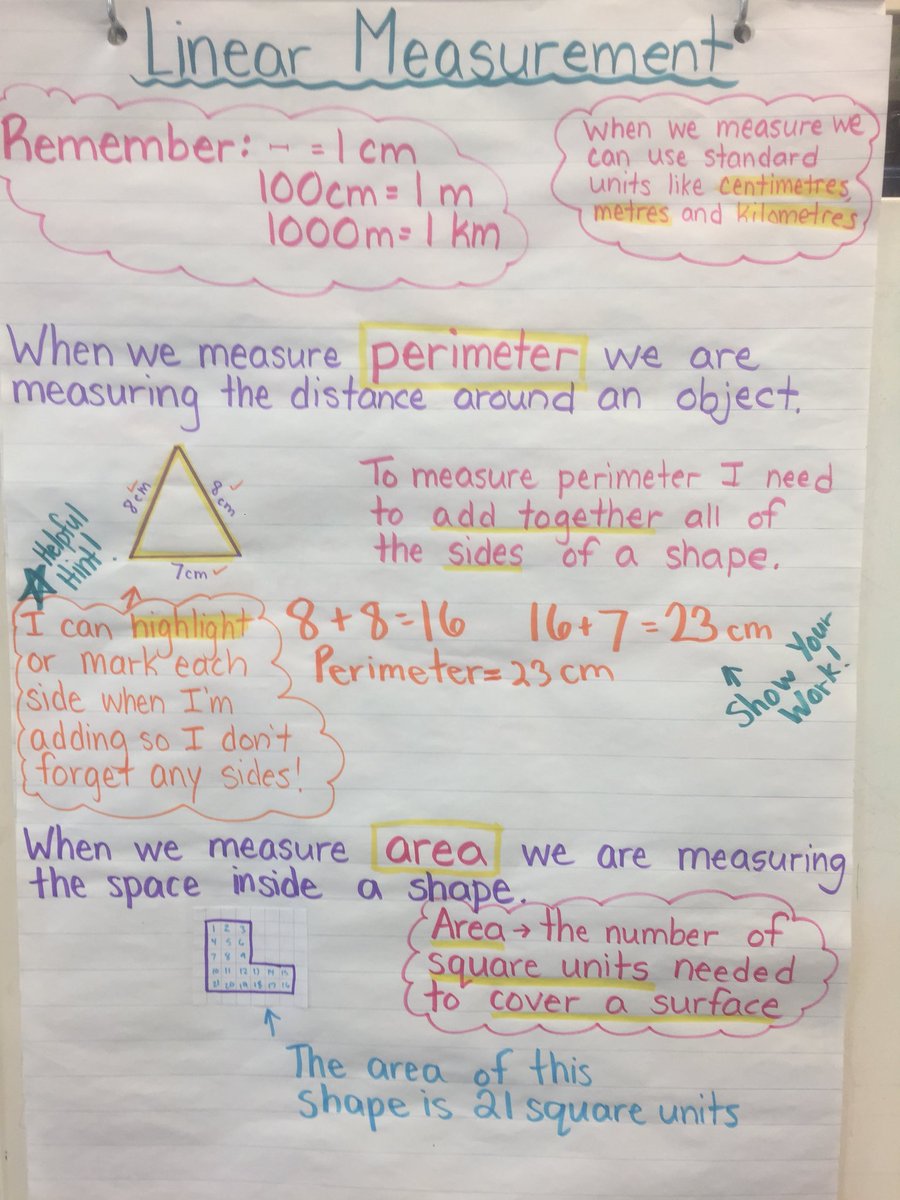 Linear Measurement
Remember: – = 1 cm
100cm = 1 m
1000m = 1 km
When we measure we
can use standard
units like centimetres,
metres and kilometres
When we measure perimeter we are
measuring the distance around an object.
8cm
8cm
7cm
Helpful
Hint!
To measure perimeter I need
to add together all of
the sides of a shape.
I can highlight
or mark each
side when I'm
adding so I don't
forget any sides!
8 + 8 = 16 16 + 7 = 23 cm
Perimeter = 23 cm
Show Your
Work!
When we measure area we are measuring
the space inside a shape.
1 2 3
4 5 6
7 8 9
10 11 12 13 14 15
21 20 19 18 17 16
Area → the number of
square units needed
to cover a surface
The area of this
shape is 21 square units